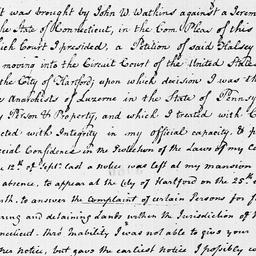 it was brought by John W. Watkins against a Jerem
the State of Connecticut, in the Com. Pleas of this
ich Court I presided, a Petition of said Halsey
moving into the Circuit Court of the United States
the City of Hartford; upon which decision I was th
Anarchists of Luzerne in the State of Pennsy
Person & Property, and which I treated with C
cted with Integrity in my official capacity. & p
cial Confidence in the Protection of the Laws of my Co
12th of Septr. last a notice was left at my mansion
absence, to appear at the City of Hartford on the 25th o
nth. to answer the complaint of certain Persons for f
ring and detaining Lands within the Jurisdiction of
necticut. thro' Inability I was not able to give your
nes notice, but gave the earliest notice I possibly co